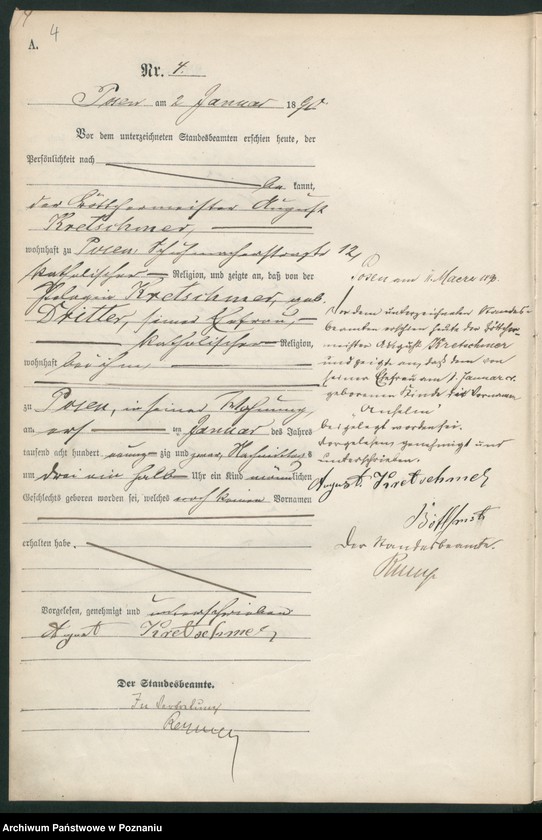 4
A.
Nr. 4.
Posen am 2 Januar 1890
Vor dem unterzeichneten Standesbeamten erschien heute, der
Persönlichkeit nach
be kannt,
der Böttchermeister August
Kretschmer,
wohnhaft zu Posen, Schuhmacherstraße 12,
katholischer Religion, und zeigte an, daß von der
Pelagia Kretschmer, geb.
Dritler, seiner Ehefrau,
katholischer Religion,
wohnhaft bei ihm,
zu Posen, in seiner Wohnung,
am ersten Januar des Jahres
tausend acht hundert neunzig und zwar Nachmittags
um drei ein halb Uhr ein Kind männlichen
Geschlechts geboren worden sei, welches noch keinen Vornamen
erhalten habe.
Vorgelesen, genehmigt und unterschrieben
August Kretschmer
Der Standesbeamte.
In Vertretung
Posen am 1 Maerz 1890.
Vor dem unterzeichneten Standes-
beamten erschien heute der Böttcher-
meister August Kretschmer
und zeigte an, daß dem von
seiner Ehefrau am 1. Januar cr.
geborenen Kinde der Vorname
"Anselm"
beigelegt worden sei.
Vorgelesen genehmigt und
unterschrieben.
August Kretschmer
Der Standesbeamte.
Archiwum Państwowe w Poznaniu